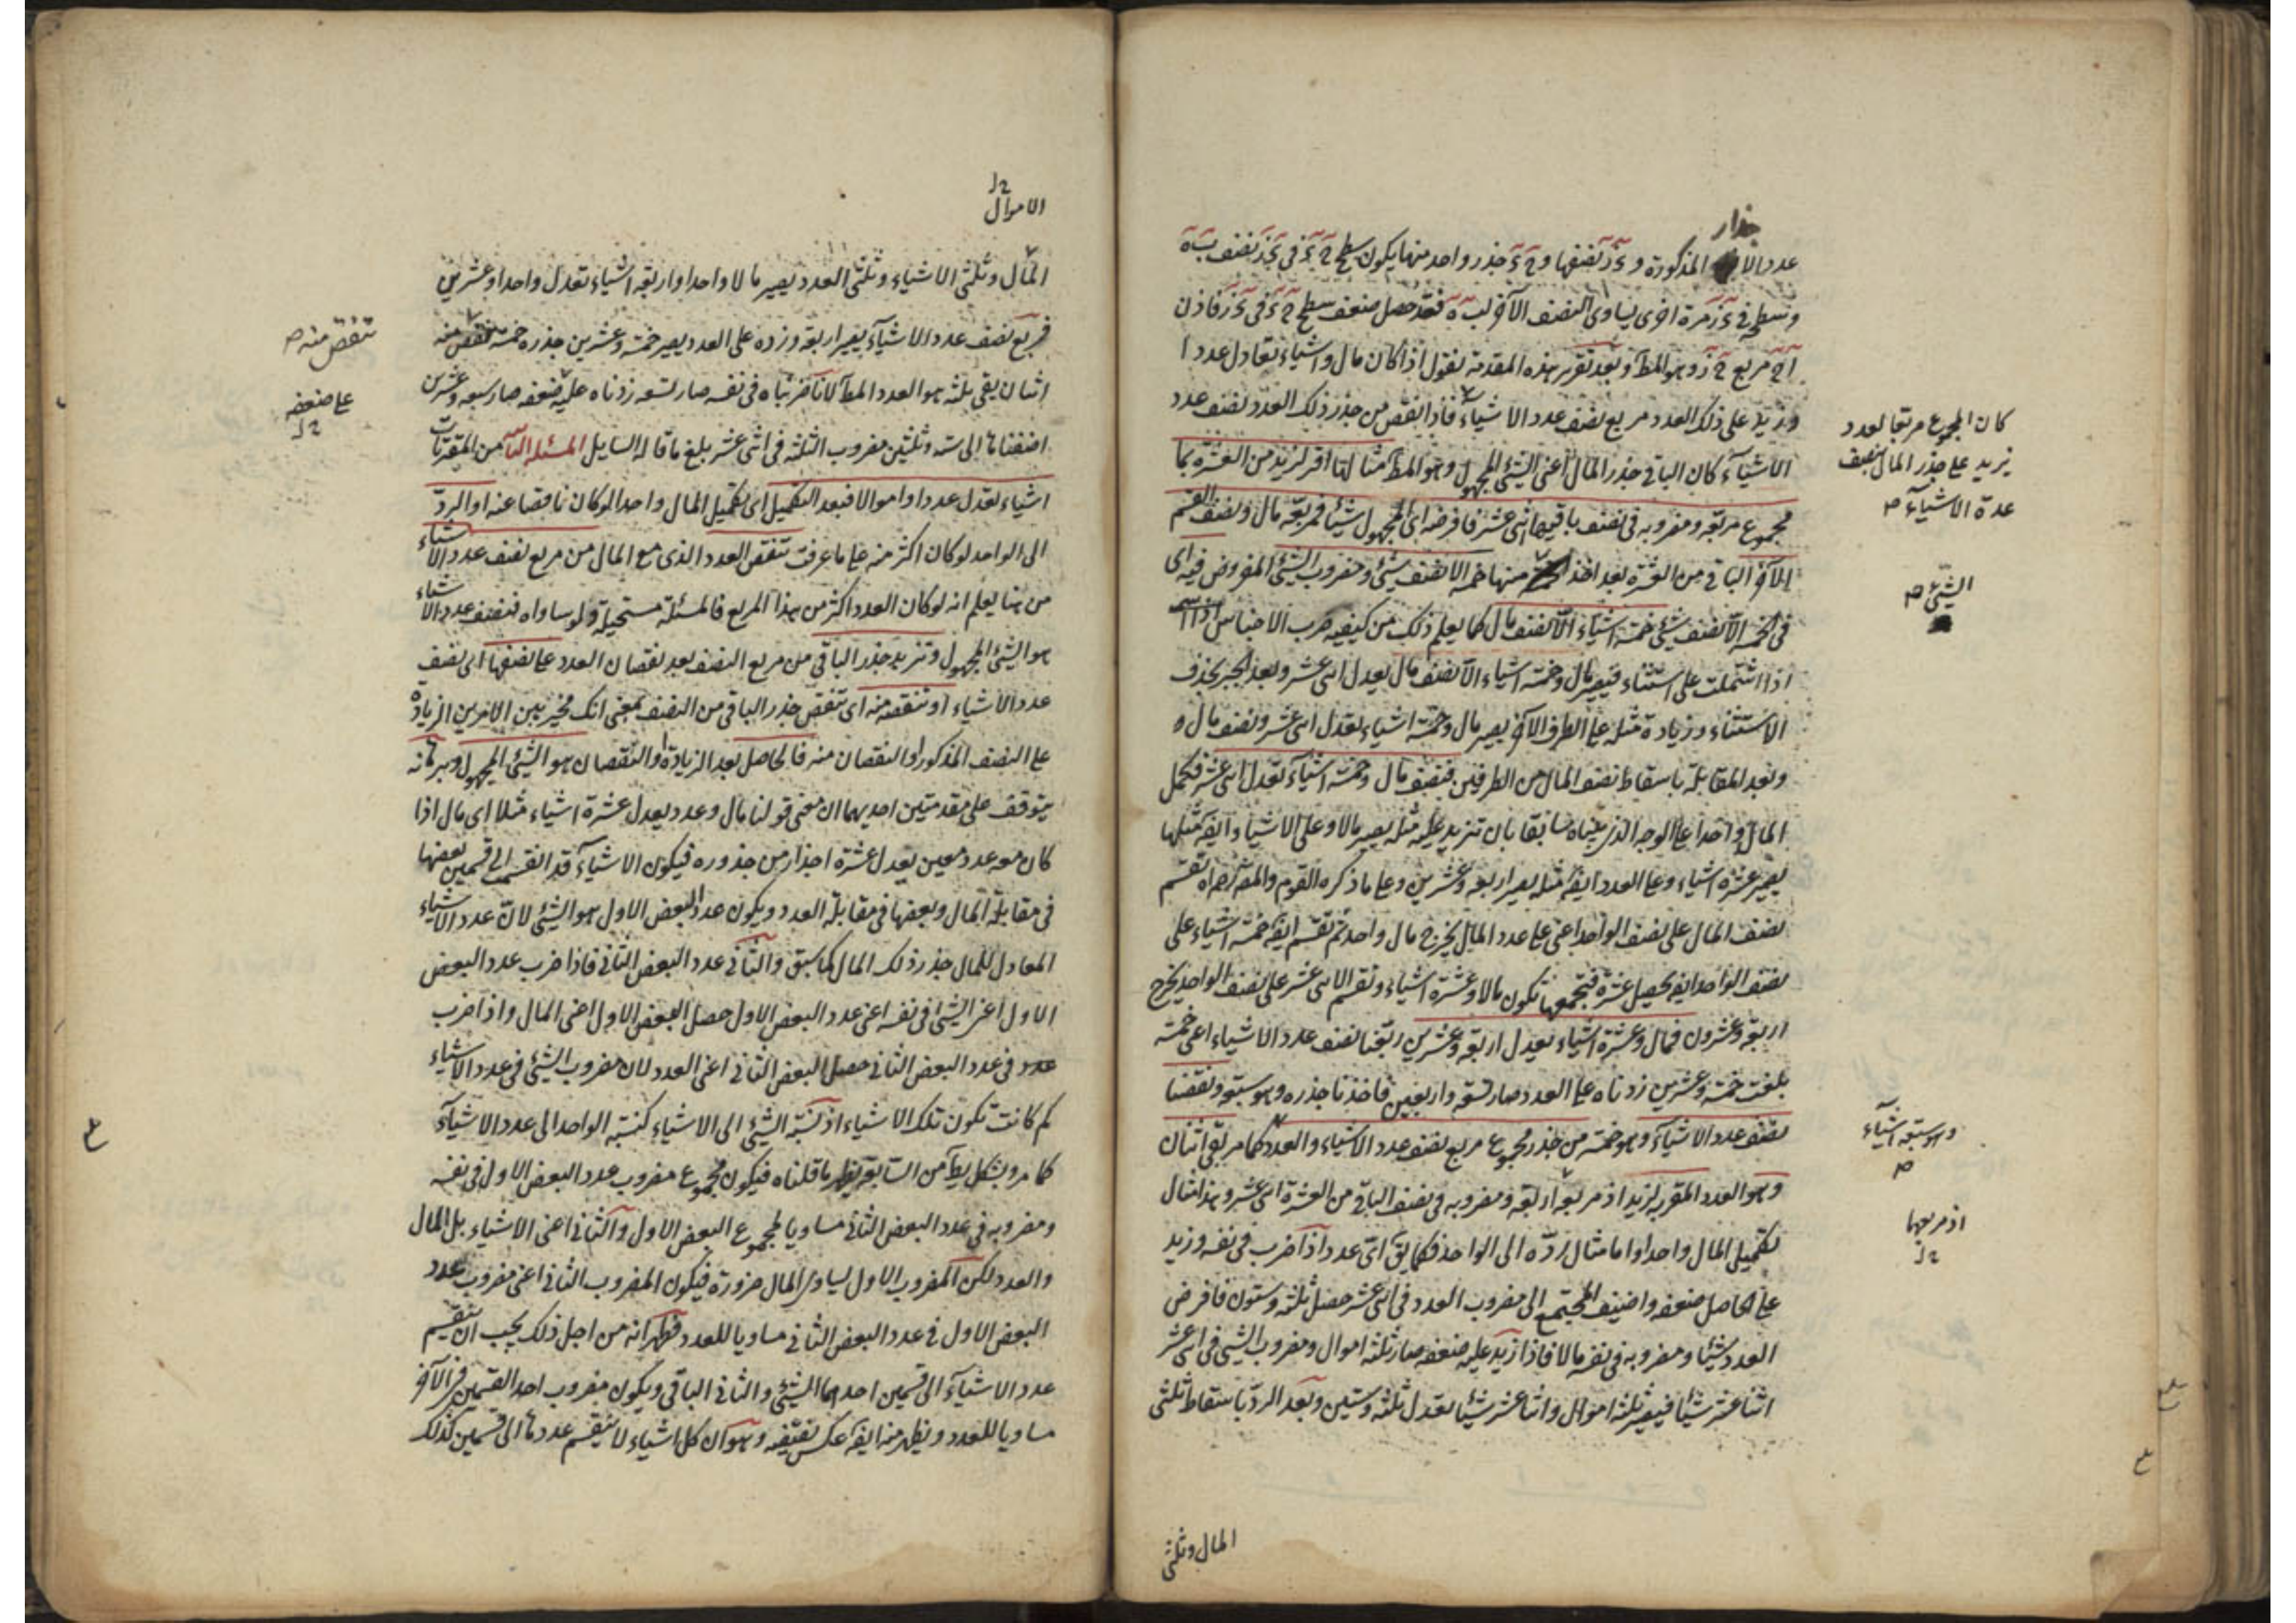 جذار
عدد الا المذكورة و ء ز نصفها و ح ء جذر واحد منها يكون سطح ح ء فى ء ز نصف ب ه
وسطح فى ء ز مرة اخرى يساوى النصف الآخر لب ه فقد حصل ضعف سطح ح ء فى ء ز فاذن
مربع ح ز وهو المط وبعد تقرير هذه المقدمة نقول اذا كان مال واشياء تعادل عددا
وزيد على ذلك العدد مربع نصف عدد الاشياء فاذا نقص من جذر ذلك العدد نصف عدد
الاشياء كان الباقى جذر المال اعنى الشئ المجهول وهو المط مثالها اقر لزيد من العشرة بما
مجموع مربعه ومضروبه فى نصف باقيها اثنى عشر فافرضه اى المجهول شيئا فمربعه مال ونصف القسم
الآخر الباقى من العشرة بعد اخذ منها خمسة الا نصف شئ ومضروب الشئ المفروض فيه اى
فى الخمسة الا نصف شئ خمسة اشياء الا نصف مال كما يعلم ذلك من كيفية ضرب الاجناس
اذا اشتملت على استثناء فيصير مال وخمسة اشياء الا نصف مال يعدل اثنى عشر وبعد الجبر بحذف
الاستثناء وزيادة مثله على الطرف الآخر يصير مال وخمسة اشياء تعدل اثنى عشر ونصف مال
وبعد المقابلة باسقاط نصف المال من الطرفين فنصف مال وخمسة اشياء تعدل اثنى عشر فكمل
المال واحدا على الوجه الذى بيناه سابقا بان تزيد عليه مثله يصير مالا وعلى الاشياء ايضا مثلها
يصير عشرة اشياء وعلى العدد ايضا مثله يصير اربعة وعشرين وعلى ما ذكره القوم والمصنف تقسم
نصف المال على نصف الواحد اعنى على عدد المال يخرج مال واحد ثم تقسم ايضا خمسة اشياء على
نصف الواحد ايضا يحصل عشرة فتجمعها تكون مالا وعشرة اشياء وتقسم الاثنى عشر على نصف الواحد يخرج
اربعة وعشرون فمال وعشرة اشياء يعدل اربعة وعشرين ربعنا نصف عدد الاشياء اعنى خمسة
بلغت خمسة وعشرين زدناه على العدد صار تسعة واربعين فاخذنا جذره وهو سبعة ونقصنا
نصف عدد الاشياء وهو خمسة من جذر مجموع مربع نصف عدد الاشياء والعدد كما مر بقى اثنان
وهو العدد المقر به لزيد اذ مربعه اربعة ومضروبه فى نصف الباقى من العشرة اثنى عشر وهذا مثال
تكميل المال واحدا واما مثال رده الى الواحد فكما يق اى عدد اذا ضرب فى نفسه وزيد
على الحاصل ضعفه واضيف المجتمع الى مضروب العدد فى اثنى عشر حصل ثلثة وستون فافرض
العدد شيئا ومضروبه فى نفسه مالا فاذا زيد عليه ضعفه صار ثلثة اموال ومضروب الشئ فى اثنى عشر
اثنا عشر شيئا فيصير ثلثة اموال واثنا عشر شيئا تعدل ثلثة وستين وبعد الرد باسقاط ثلثى
المال وثلثى
كان المجموع مربعا لعدد
يزيد على جذر المال بنصف
عدة الاشياء ص
الشئ ص
وهو سبعة اشياء
ص
اذ مربعها
الاموال
المال وثلثى الاشياء وثلثى العدد يصير مالا واحدا واربعة اشياء تعدل واحدا وعشرين
فربع نصف عدد الاشياء يصير اربعة وزده على العدد يصير خمسة وعشرين جذره خمسة تنقص منه
اثنان يبقى ثلثة هو العدد المط لانا ضربناه فى نفسه صار تسعة زدناه عليه ضعفه صار سبعة وعشرين
اضفناها الى ستة وثلثين مضروب الثلثة فى اثنى عشر بلغ ما قاله السايل المسئلة من المقترنات
اشياء تعدل عددا واموالا فبعد التكميل اى تكميل المال واحدا لو كان ناقصا عنه او الرد
الى الواحد لو كان اكثر منه على ما عرفت تنقص العدد الذى مع المال من مربع نصف عدد الاشياء
من هنا يعلم انه لو كان العدد اكثر من هذا المربع فالمسئلة مستحيلة ولو ساواه فنصف عدد الاشياء
هو الشئ المجهول وتزيد جذر الباقى من مربع النصف بعد نقصان العدد على نصفها اى نصف
عدد الاشياء او تنقصه منه اى تنقص جذر الباقى من النصف بمعنى انك مخير بين الامرين الزيادة
على النصف المذكور او النقصان منه فالحاصل بعد الزيادة او النقصان هو الشئ المجهول وبرهانه
يتوقف على مقدمتين احديهما ان معنى قولنا مال وعدد يعدل عشرة اشياء مثلا اى مال اذا
كان معه عدد معين يعدل عشرة اجذار من جذوره فيكون الاشياء قد انقسم الى قسمين بعضها
فى مقابلة المال وبعضها فى مقابلة العدد ويكون عدد البعض الاول هو الشئ لان عدد الاشياء
المعادل للمال جذر ذلك المال كما سبق والثانى عدد البعض الثانى فاذا ضرب عدد البعض
الاول اعنى الشئ فى نفسه اعنى عدد البعض الاول حصل البعض الاول اعنى المال واذا ضرب
عدد فى عدد البعض الثانى حصل البعض الثانى اعنى العدد لان مضروب الشئ فى عدد الاشياء
كم كانت تكون تلك الاشياء اذ نسبة الشئ الى الاشياء كنسبة الواحد الى عدد الاشياء
كما مر وبشكل يط من السابعة يظهر ما قلناه فيكون مجموع مضروب عدد البعض الاول فى نفسه
ومضروبه فى عدد البعض الثانى مساويا لمجموع البعض الاول والثانى اعنى الاشياء بل المال
والعدد لكن المضروب الاول يساوى المال ضرورة فيكون المضروب الثانى اعنى مضروب عدد
البعض الاول فى عدد البعض الثانى مساويا للعدد فظهر انه من اجل ذلك يجب ان ينقسم
عدد الاشياء الى قسمين احدهما الشئ والثانى الباقى ويكون مضروب احد القسمين فى الآخر
مساويا للعدد ويظهر منه ايضا عكس نقيضه وهو ان كل اشياء لا ينقسم عددها الى قسمين كذلك
تنقص منه ص
على ضعفه